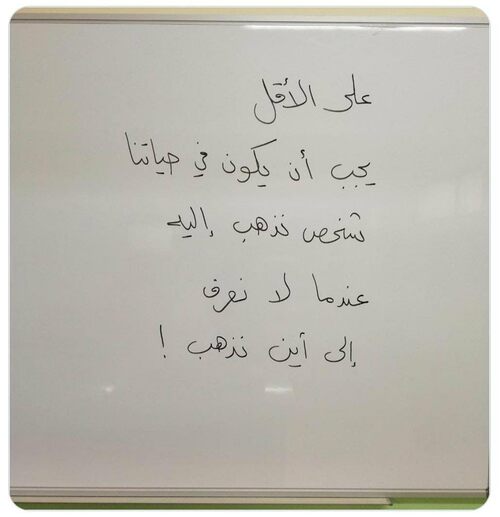 على الأقل
يجب أن يكون في حياتنا
شخص نذهب إليه
عندما لا نعرف
إلى أين نذهب !